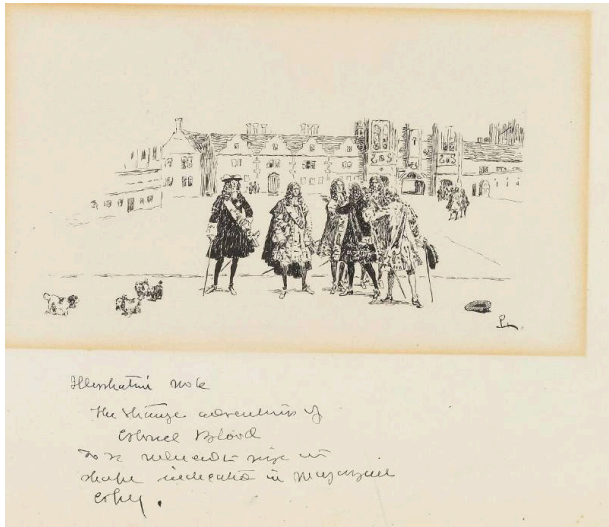 Illustration
The strange adventures of
Colonel Blood
To be reduced in size to
shape indicated in magazine
copy.